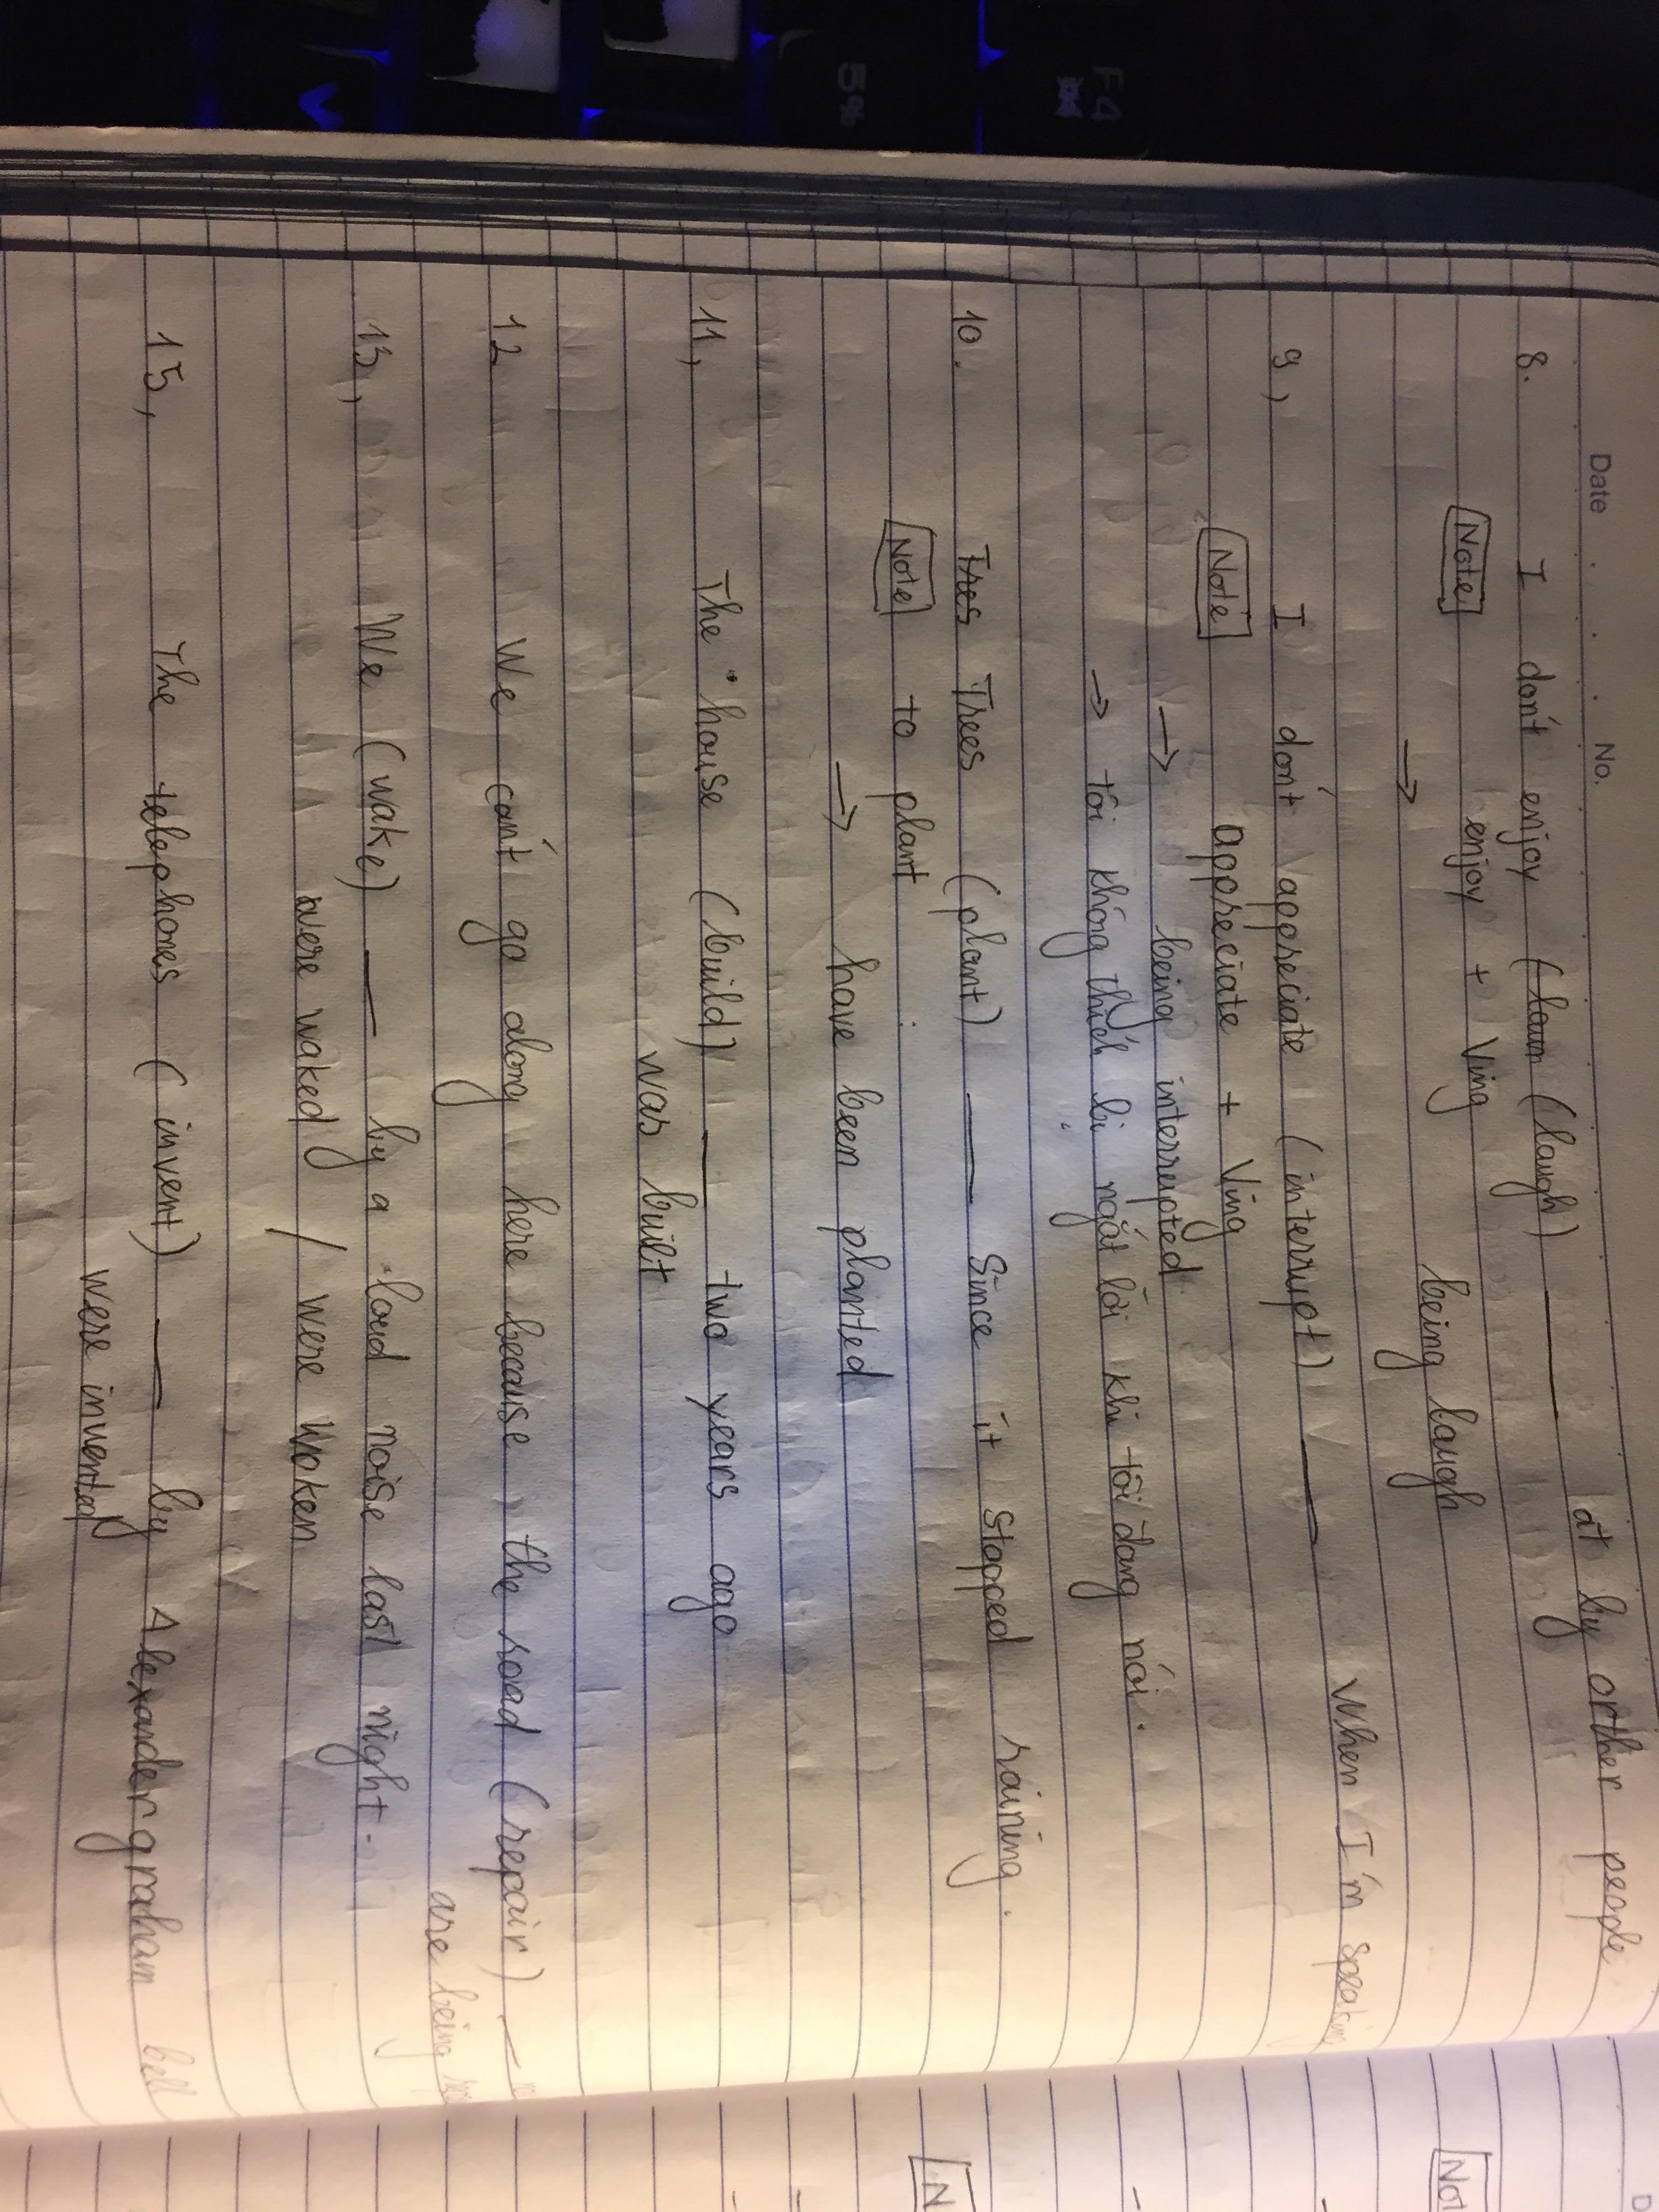 F4
5%
Date No.
8. I don't enjoy (laun (laugh) ___ at by orther people
Note enjoy + Ving
→ being laugh
9, I don't appreciate (interrupt) ___ When I'm speaking
Note appreciate + Ving
→ being interrupted
→ tôi không thích bị ngắt lời khi tôi đang nói.
10. Tres Trees (plant) ___ Since it stopped raining.
Note to plant
→ have been planted
11, The house (build) ___ two years ago
was built
12 We can't go along here because the road (repair) ___
are being
13, We (wake) ___ by a loud noise last night.
were waked / were woken
15, The telephones (invent) ___ by Alexander graham bell
were invented
Not
N
D